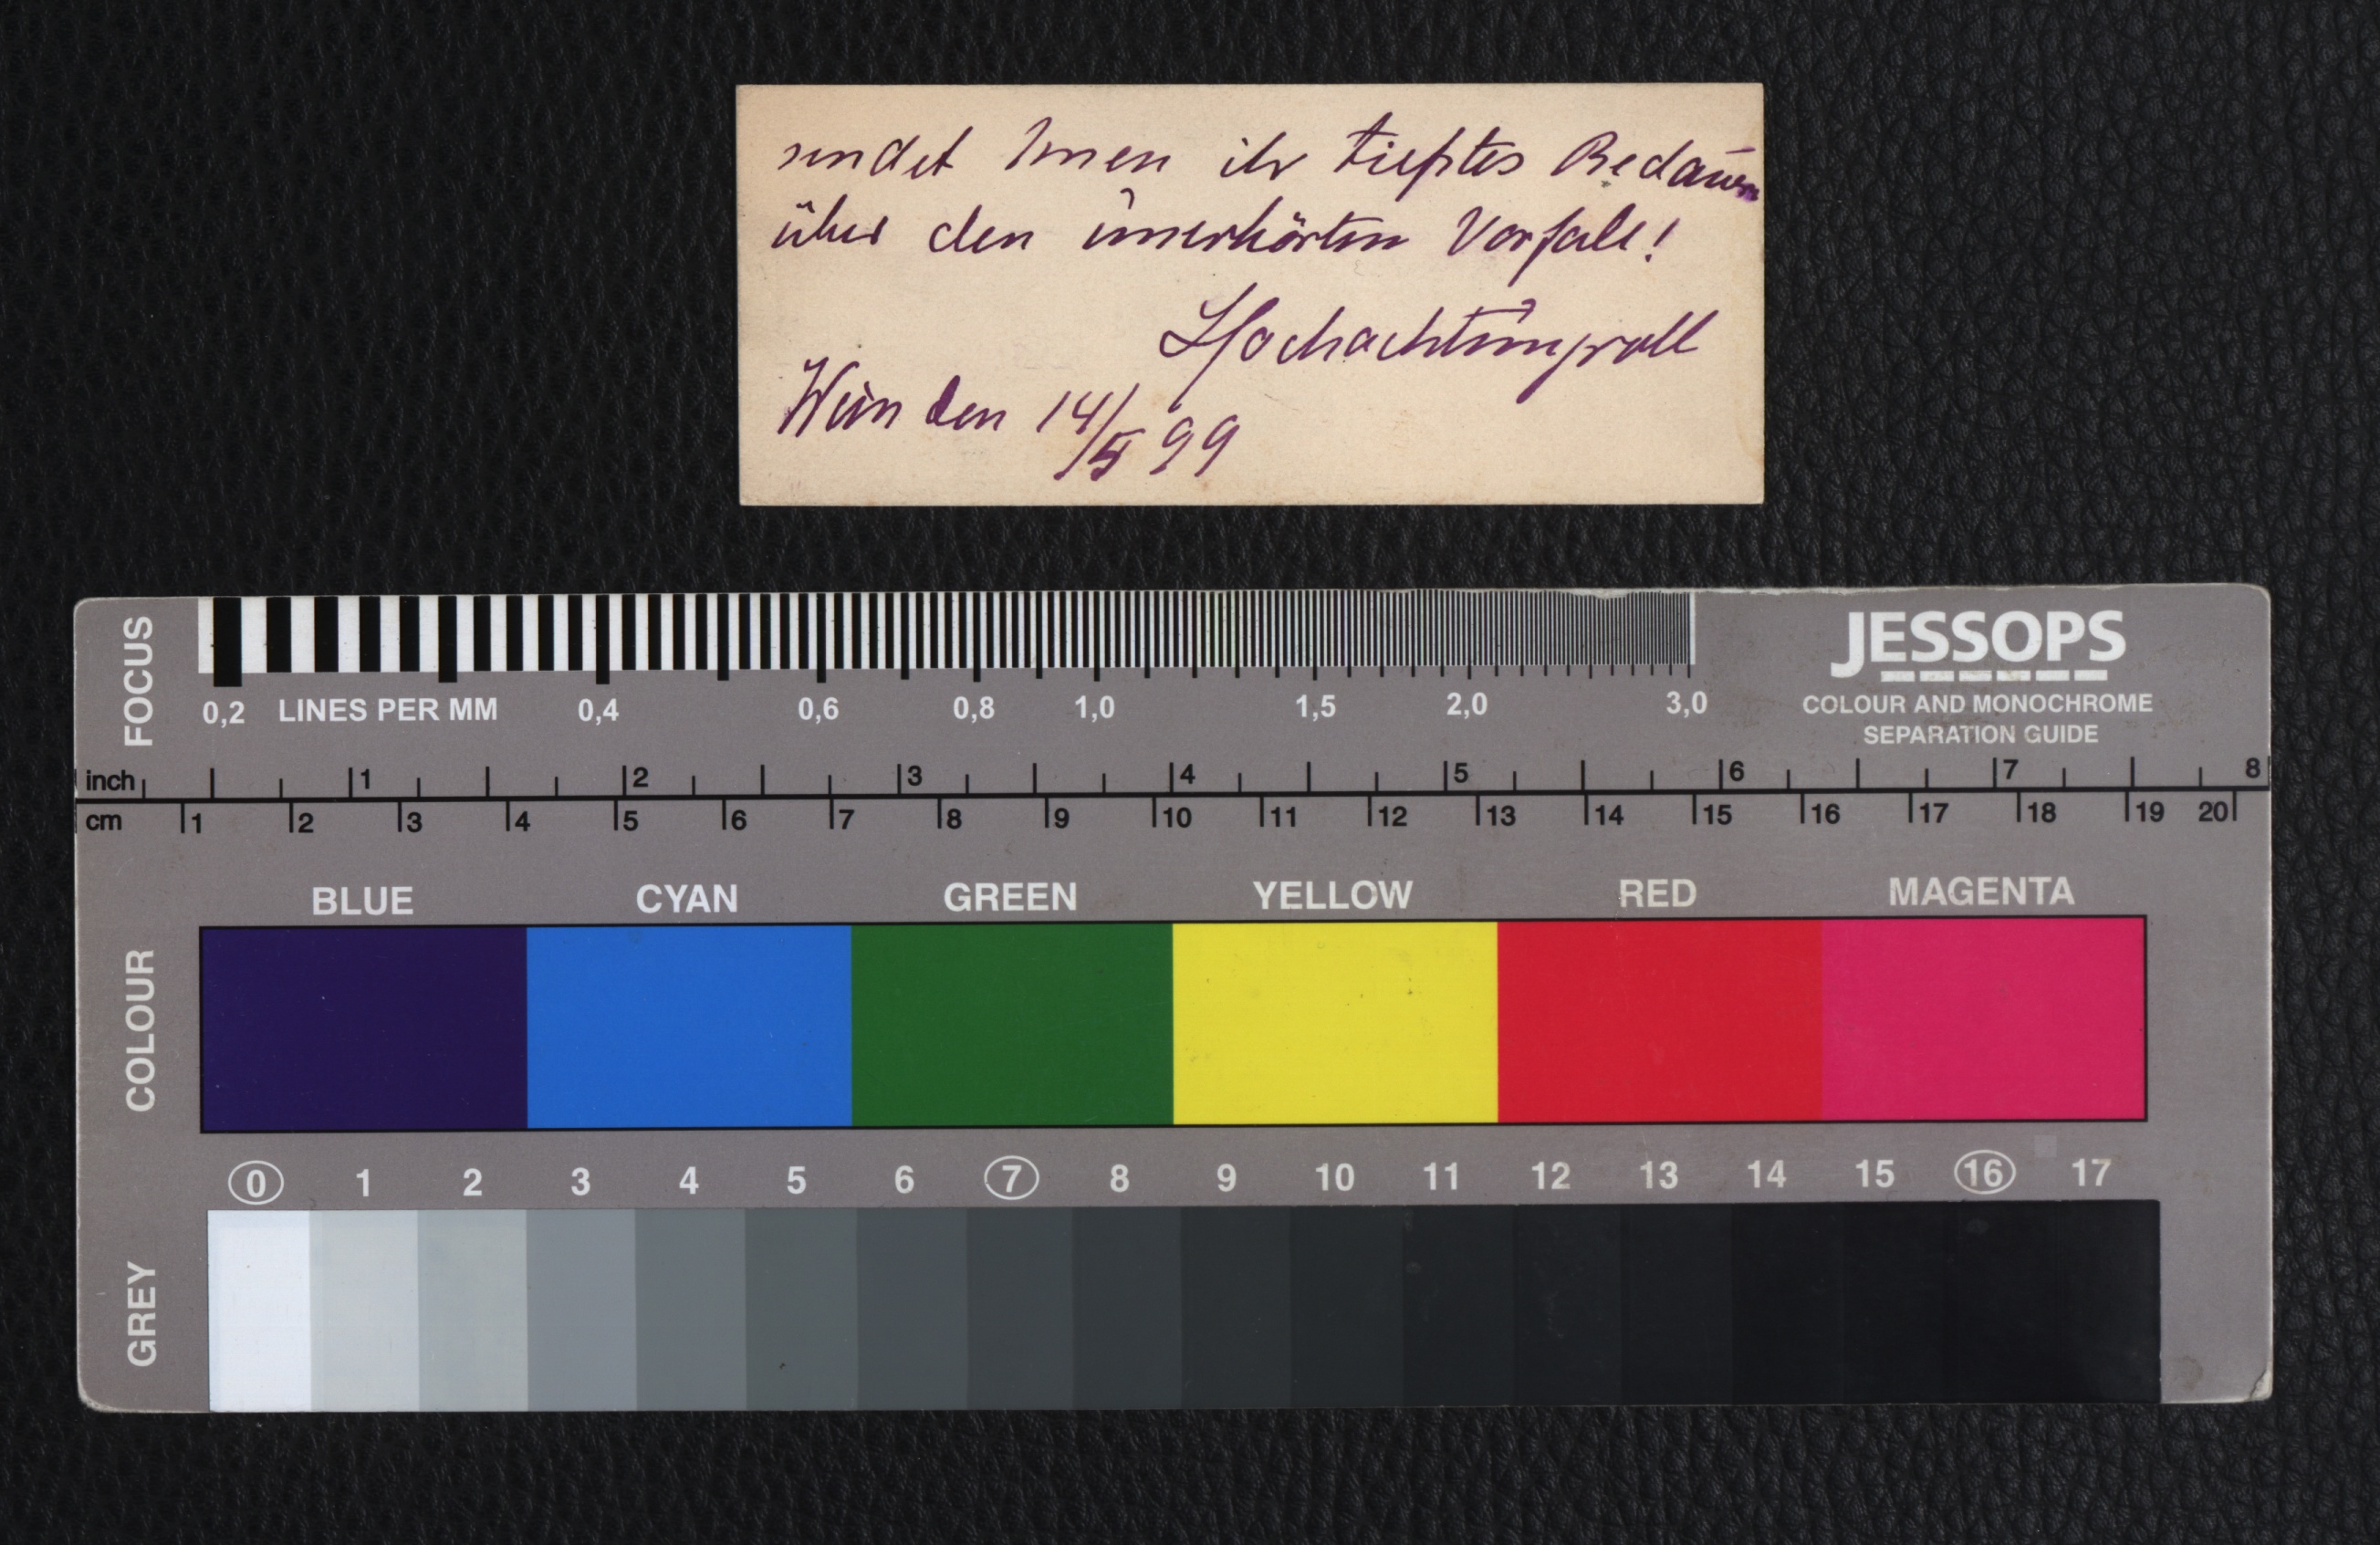 sendet Ihnen ihr tiefstes Bedauern
über den unerhörten Vorfall!
Hochachtungsvoll
Wien den 14/5 99
FOCUS
0,2 LINES PER MM 0,4 0,6 0,8 1,0 1,5 2,0 3,0
JESSOPS
COLOUR AND MONOCHROME
SEPARATION GUIDE
inch 1 2 3 4 5 6 7 8
cm 1 2 3 4 5 6 7 8 9 10 11 12 13 14 15 16 17 18 19 20
BLUE CYAN GREEN YELLOW RED MAGENTA
COLOUR
0 1 2 3 4 5 6 7 8 9 10 11 12 13 14 15 16 17
GREY